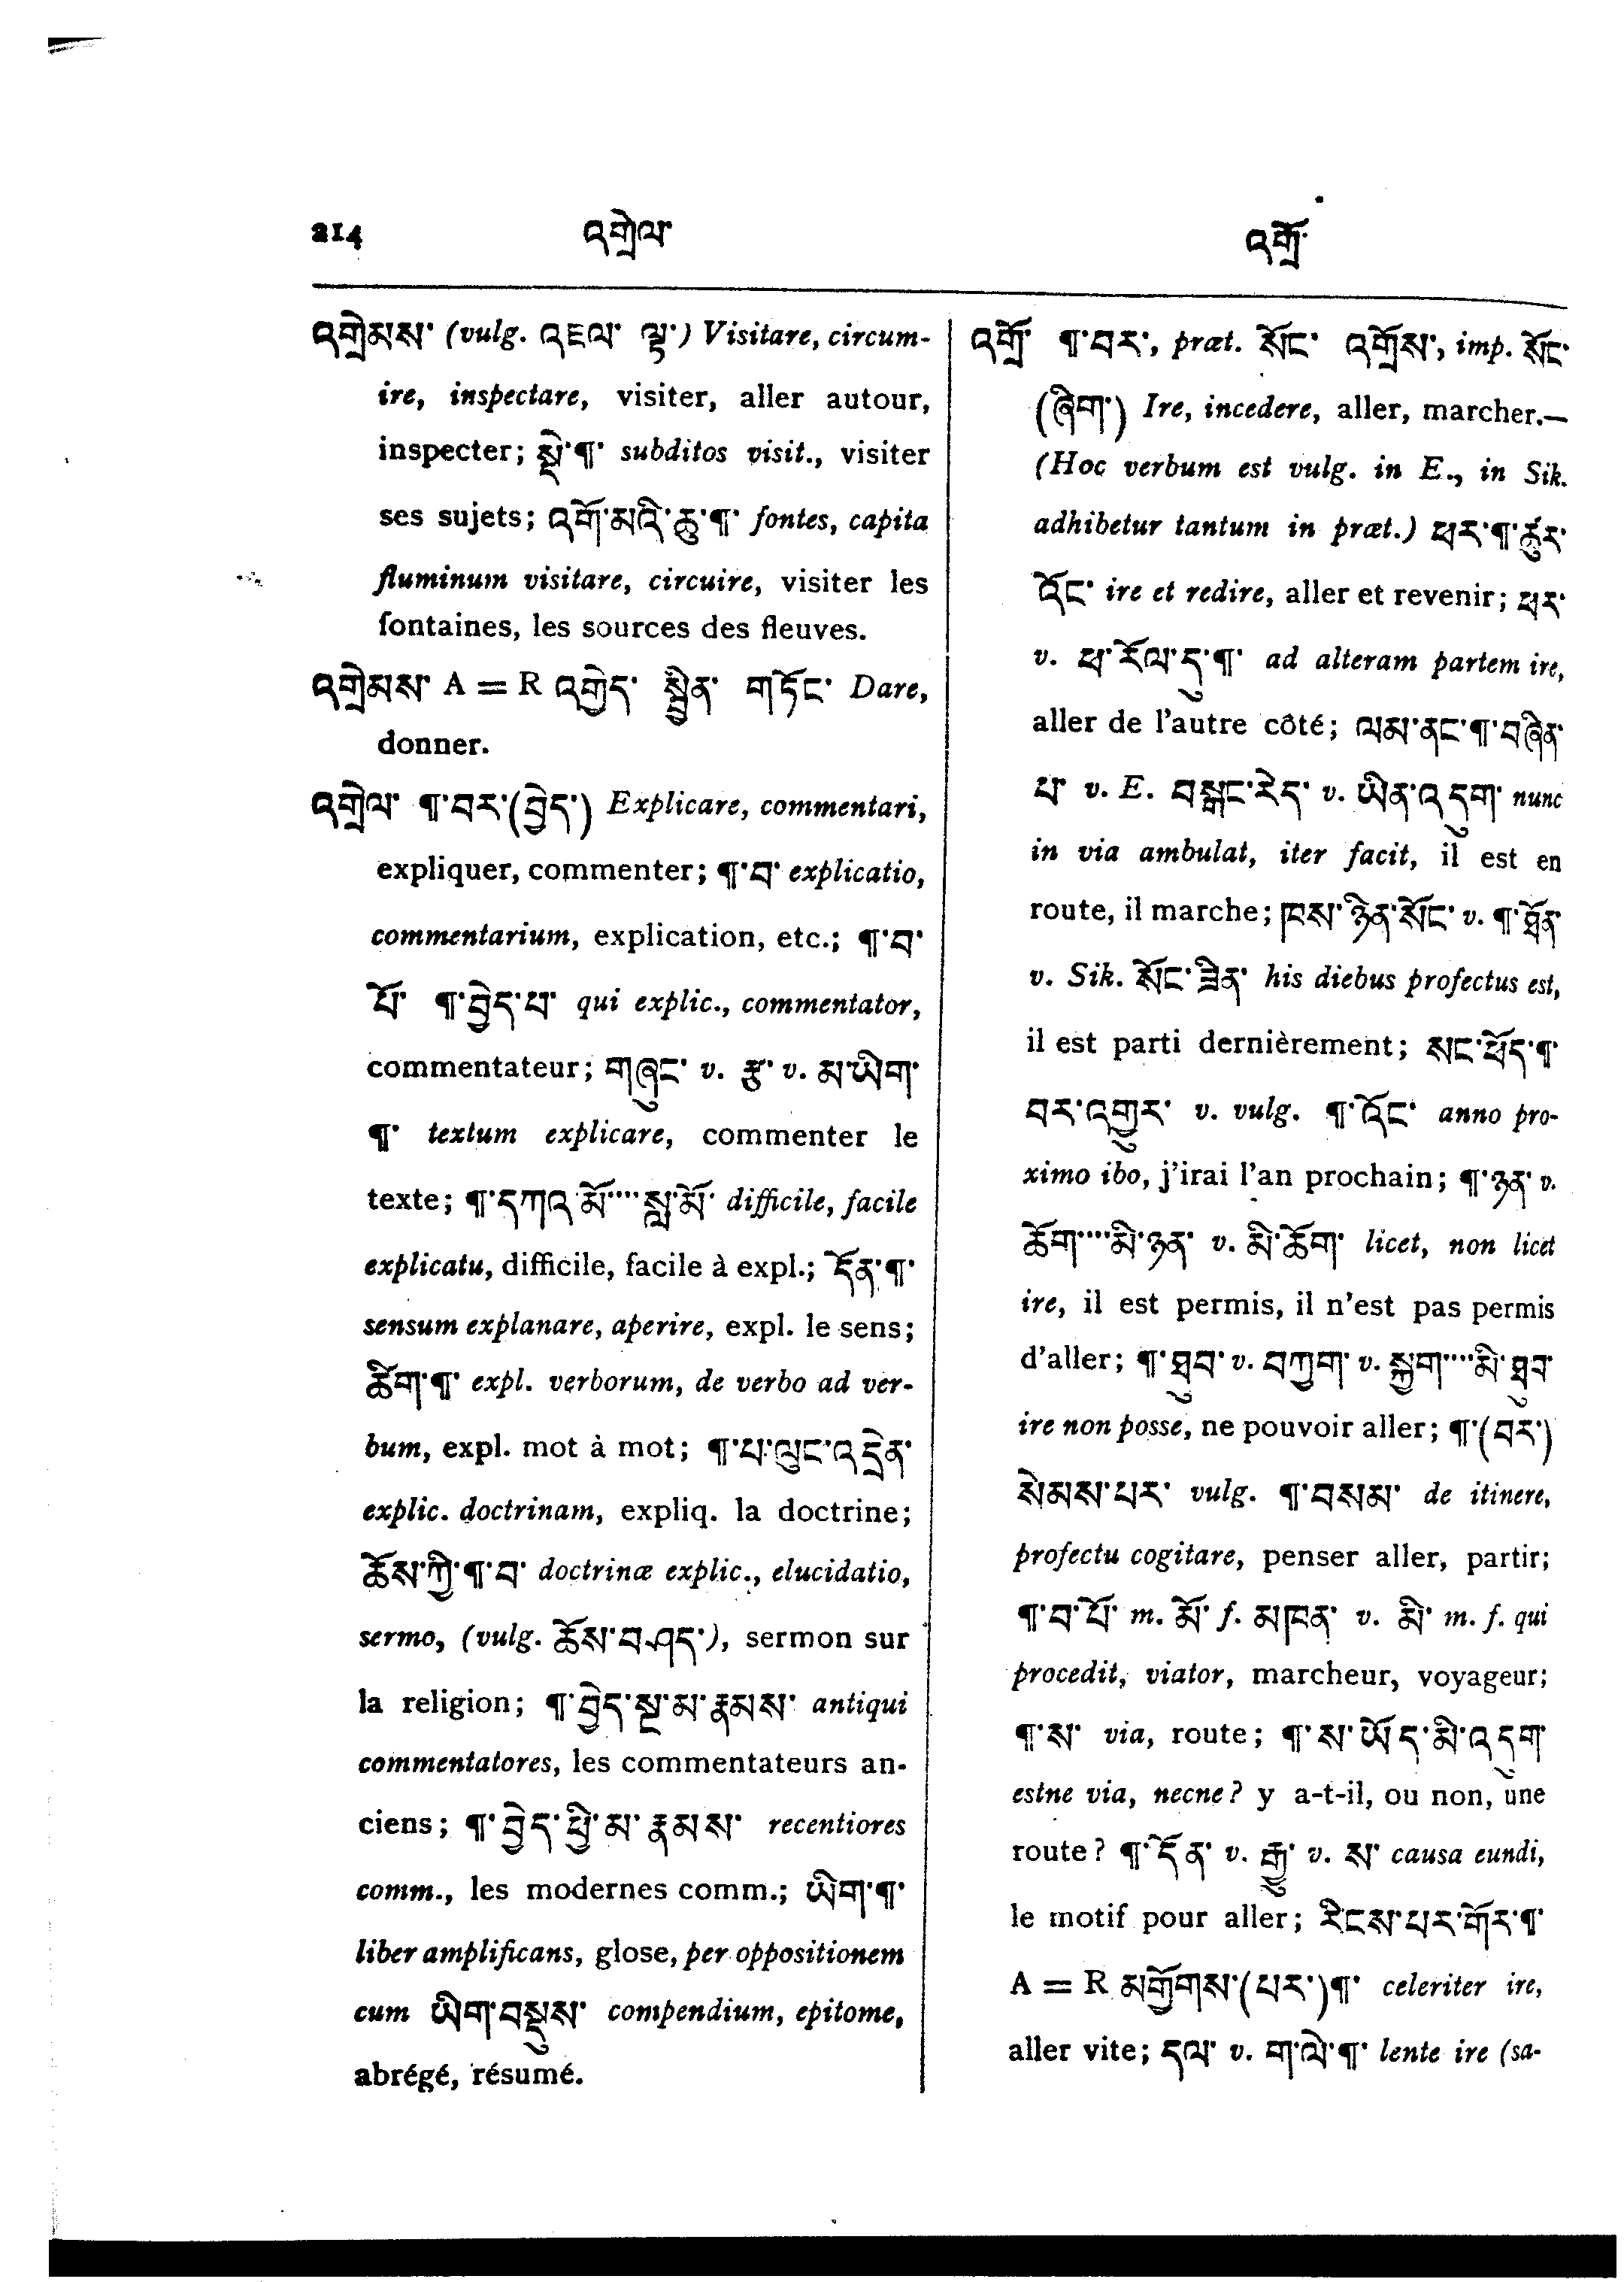 214 འགྲེལ་ འགྲོ་
འགྲེམས་ (vulg. འཇལ་ ལྟ་) Visitare, circum-
ire, inspectare, visiter, aller autour,
inspecter; སྡེ་¶་ subditos visit., visiter
ses sujets; འགོ་མའི་ཆུ་¶་ fontes, capita
fluminum visitare, circuire, visiter les
fontaines, les sources des fleuves.
འགྲེམས་ A = R འགྱེད་ སྦྱིན་ གཏོང་ Dare,
donner.
འགྲེལ་ ¶་བར་(བྱེད་) Explicare, commentari,
expliquer, commenter; ¶་བ་ explicatio,
commentarium, explication, etc.; ¶་བ་
པོ་ ¶་བྱེད་པ་ qui explic., commentator,
commentateur; གཞུང་ v. རྩ་ v. མ་ཡིག་
¶་ textum explicare, commenter le
texte; ¶་དཀའ་མོ་...སླ་མོ་ difficile, facile
explicatu, difficile, facile à expl.; དོན་¶་
sensum explanare, aperire, expl. le sens;
ཚིག་¶་ expl. verborum, de verbo ad ver-
bum, expl. mot à mot; ¶་པ་ལུང་འདྲེན་
explic. doctrinam, expliq. la doctrine;
ཆོས་ཀྱི་¶་བ་ doctrinæ explic., elucidatio,
sermo, (vulg. ཆོས་བཤད་), sermon sur
la religion; ¶་བྱེད་སྔ་མ་རྣམས་ antiqui
commentatores, les commentateurs an-
ciens; ¶་བྱེད་ཕྱི་མ་རྣམས་ recentiores
comm., les modernes comm.; ཡིག་¶་
liber amplificans, glose, per oppositionem
cum ཡིག་བསྡུས་ compendium, epitome,
abrégé, résumé.
འགྲོ་ ¶་བར་, præt. སོང་ འགྲོས་, imp. སོང་
(ཞིག་) Ire, incedere, aller, marcher.—
(Hoc verbum est vulg. in E., in Sik.
adhibetur tantum in præt.) ཕར་¶་ཚུར་
འོང་ ire et redire, aller et revenir; ཕར་
v. ཕ་རོལ་དུ་¶་ ad alteram partem ire,
aller de l'autre côté; ལམ་ནང་¶་བཞིན་
པ་ v. E. བསྒང་རེད་ v. ཡིན་འདུག་ nunc
in via ambulat, iter facit, il est en
route, il marche; ཁས་ཉིན་སོང་ v. ¶་ཐོན་
v. Sik. སོང་ཟིན་ his diebus profectus est,
il est parti dernièrement; སང་ཕོད་¶་
བར་འགྱུར་ v. vulg. ¶་འོང་ anno pro-
ximo ibo, j'irai l'an prochain; ¶་ཉན་ v.
ཆོག་...མི་ཉན་ v. མི་ཆོག་ licet, non licet
ire, il est permis, il n'est pas permis
d'aller; ¶་ཐུབ་ v. བཀྱག་ v. སྐྱག་...མི་ཐུབ་
ire non posse, ne pouvoir aller; ¶་(བར་)
སེམས་པར་ vulg. ¶་བསམ་ de itinere,
profectu cogitare, penser aller, partir;
¶་བ་པོ་ m. མོ་ f. མཁན་ v. མི་ m. f. qui
procedit, viator, marcheur, voyageur;
¶་ས་ via, route; ¶་ས་ཡོད་མི་འདུག་
estne via, necne? y a-t-il, ou non, une
route? ¶་དོན་ v. རྒྱུ་ v. ས་ causa eundi,
le motif pour aller; རིངས་པར་གོར་¶་
A = R མགྱོགས་(པར་)¶་ celeriter ire,
aller vite; དལ་ v. ག་ལེ་¶་ lente ire (sa-